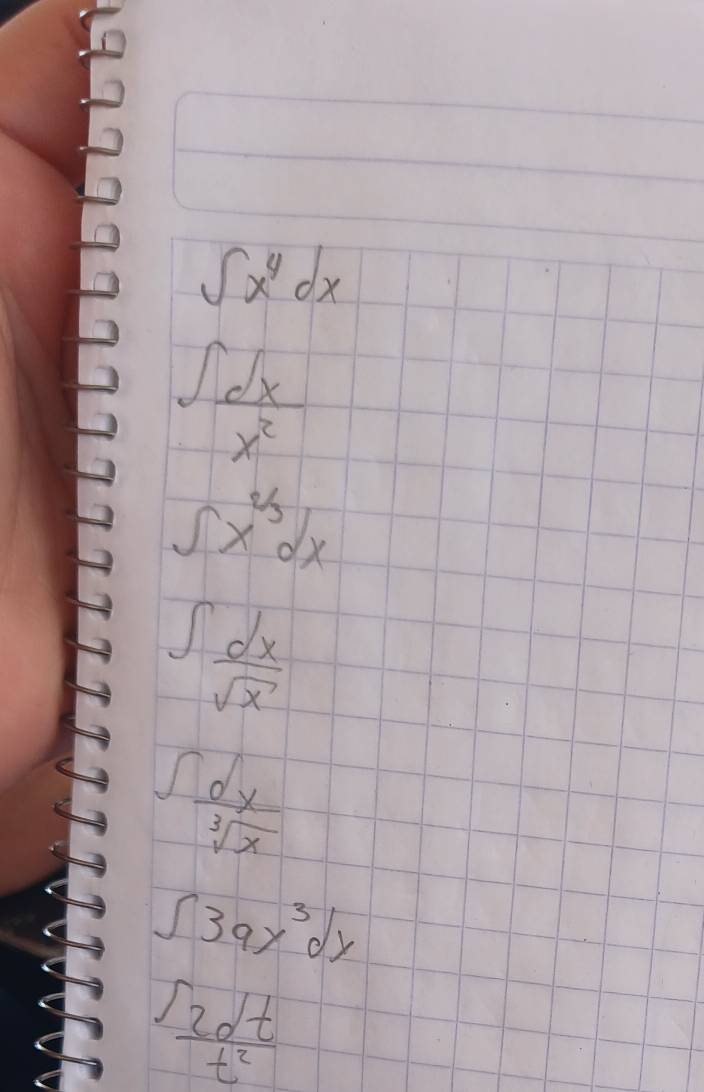 ∫x⁴ dx
∫dx/x²
∫x^(2/3) dx
∫dx/√x
∫dx/∛x
∫3ay³dy
∫2dt/t²